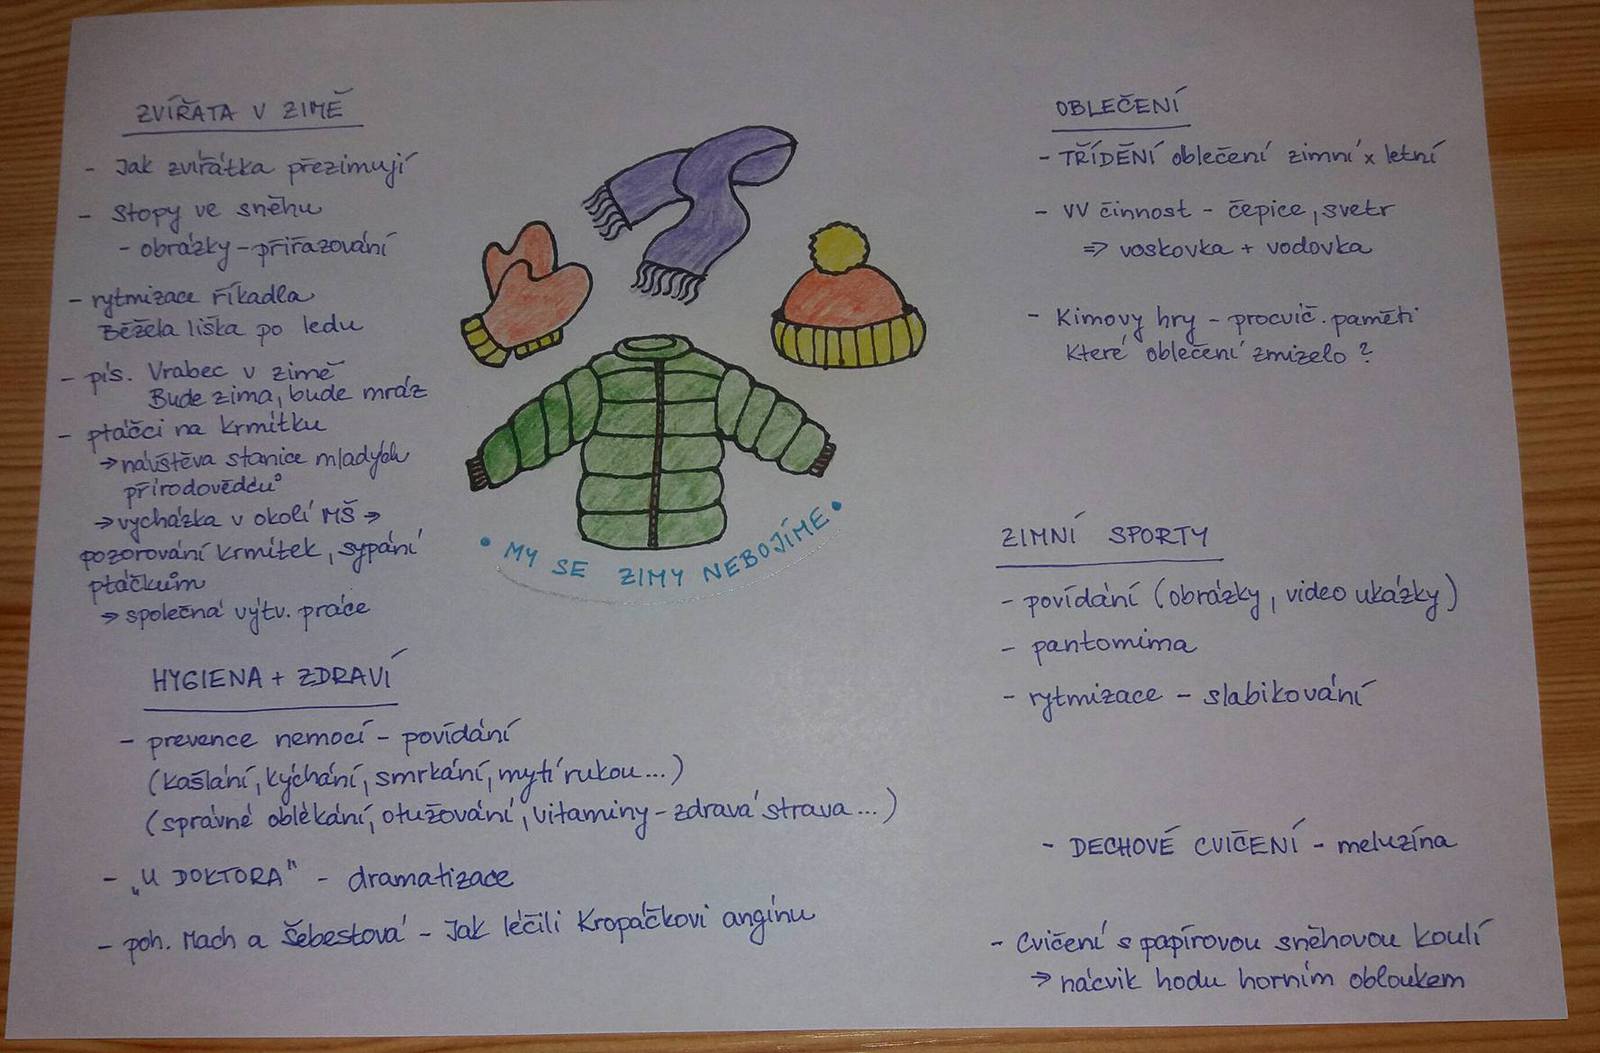 ZVÍŘATA V ZIMĚ
- Jak zvířátka přezimují
- Stopy ve sněhu
- obrázky - přiřazování
- rytmizace říkadla
Běžela liška po ledu
- pís. Vrabec v zimě
Bude zima, bude mráz
- ptáčci na krmítku
→ návštěva stanice mladých
přírodovědců
→ vycházka v okolí MŠ →
pozorování krmítek, sypání
ptáčkům
→ společná výtv. práce
HYGIENA + ZDRAVÍ
- prevence nemocí - povídání
(kašlání, kýchání, smrkání, mytí rukou...)
(správné oblékání, otužování, vitaminy - zdravá strava...)
- „U DOKTORA" - dramatizace
- poh. Mach a Šebestová - Jak léčili Kropáčkovi angínu
• MY SE ZIMY NEBOJÍME •
OBLEČENÍ
- TŘÍDĚNÍ oblečení zimní x letní
- VV činnost - čepice, svetr
⇒ voskovka + vodovka
- Kimovy hry - procvič. paměti
Které oblečení zmizelo ?
ZIMNÍ SPORTY
- povídání (obrázky, video ukázky)
- pantomima
- rytmizace - slabikování
- DECHOVÉ CVIČENÍ - meluzína
- Cvičení s papírovou sněhovou koulí
→ nácvik hodu horním obloukem